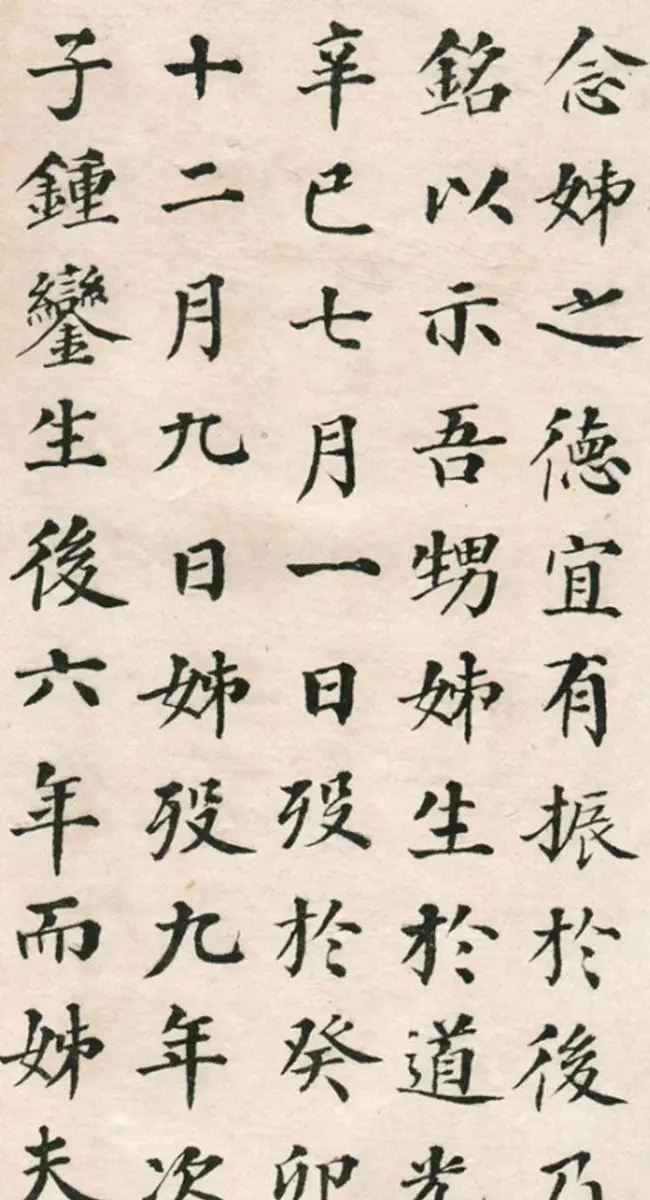 念姊之德宜有振於後乃
銘以示吾甥姊生於道光
辛巳七月一日歿於癸卯
十二月九日姊歿九年次
子鍾鑾生後六年而姊夫